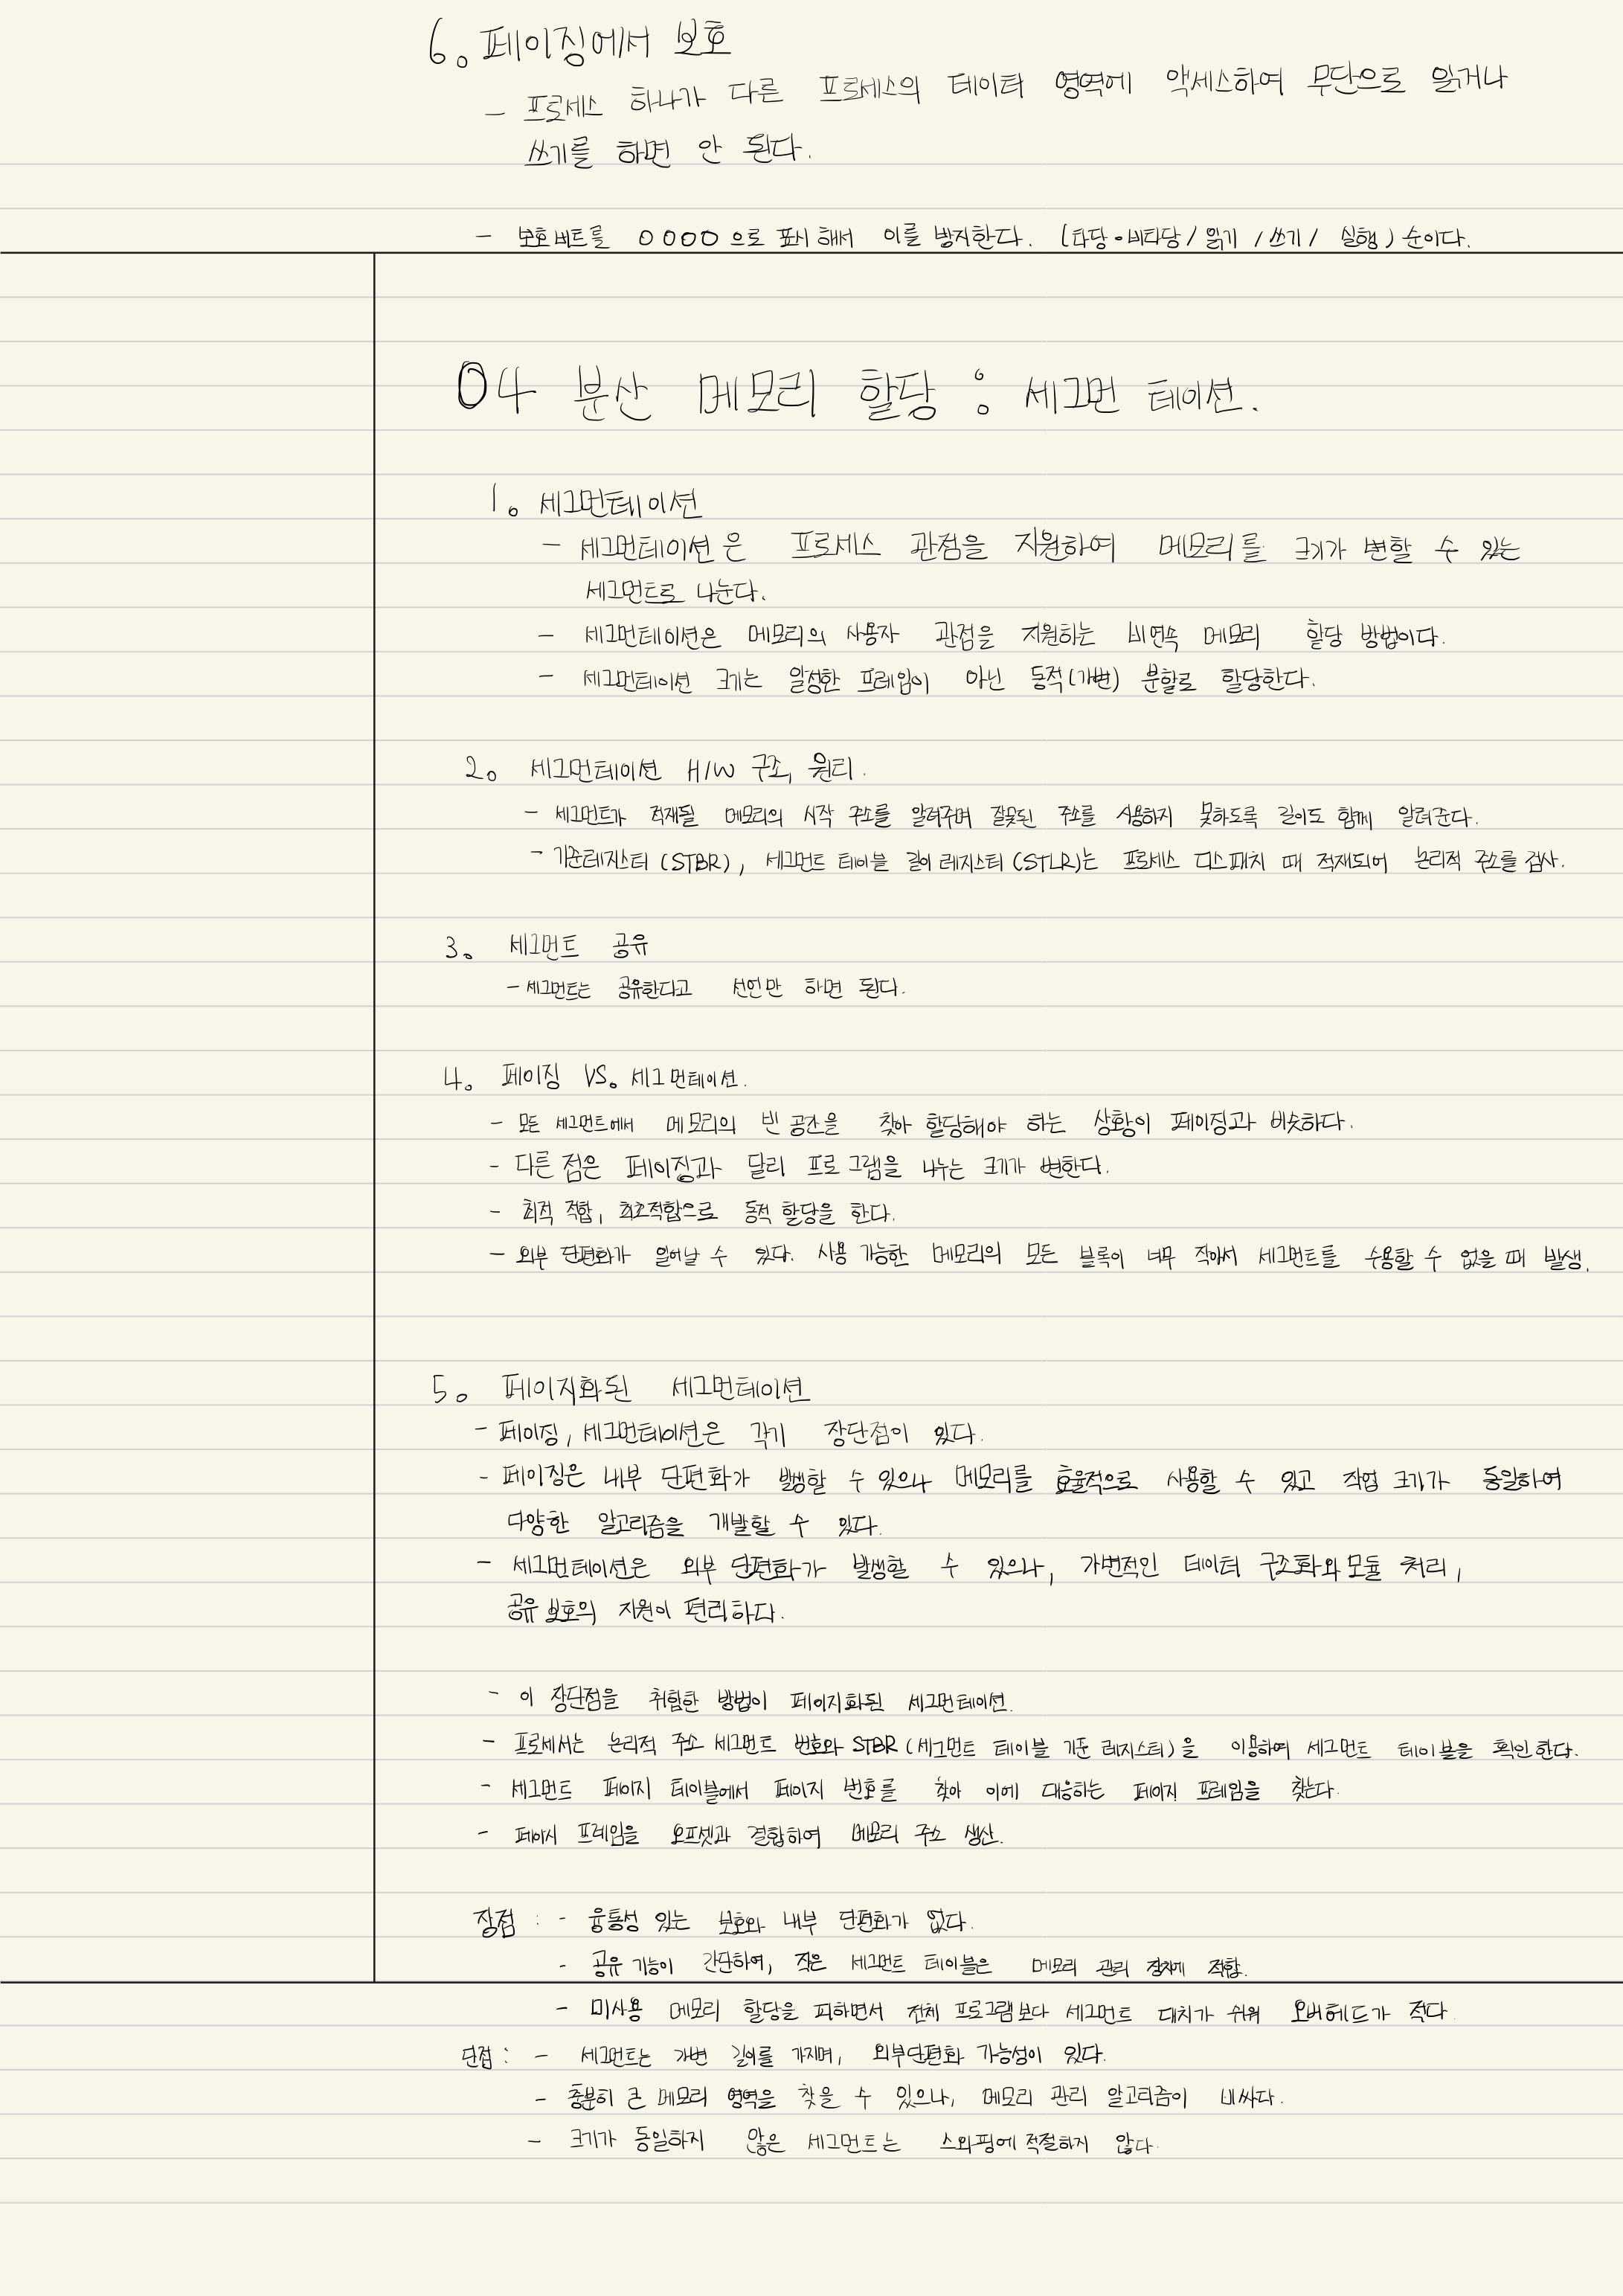 6. 페이징에서 보호
- 프로세스 하나가 다른 프로세스의 데이터 영역에 액세스하여 무단으로 읽거나
쓰기를 하면 안 된다.
- 보호 비트를 0000 으로 표시해서 이를 방지한다. (타당·비타당 / 읽기 / 쓰기 / 실행) 순이다.
04 분산 메모리 할당 : 세그먼테이션.
1. 세그먼테이션
- 세그먼테이션은 프로세스 관점을 지원하여 메모리를 크기가 변할 수 있는
세그먼트로 나눈다.
- 세그먼테이션은 메모리의 사용자 관점을 지원하는 비연속 메모리 할당 방법이다.
- 세그먼테이션 크기는 일정한 프레임이 아닌 동적(가변) 분할로 할당한다.
2. 세그먼테이션 H/W 구조, 원리.
- 세그먼트가 적재될 메모리의 시작 주소를 알려주며 잘못된 주소를 사용하지 못하도록 길이도 함께 알려준다.
- 기준레지스터(STBR), 세그먼트 테이블 길이 레지스터(STLR)는 프로세스 디스패치 때 적재되어 논리적 주소를 검사.
3. 세그먼트 공유
- 세그먼트는 공유한다고 선언만 하면 된다.
4. 페이징 VS. 세그먼테이션.
- 모든 세그먼트에서 메모리의 빈 공간을 찾아 할당해야 하는 상황이 페이징과 비슷하다.
- 다른 점은 페이징과 달리 프로그램을 나누는 크기가 변한다.
- 최적 적합, 최초적합으로 동적 할당을 한다.
- 외부 단편화가 일어날 수 있다. 사용 가능한 메모리의 모든 블록이 너무 작아서 세그먼트를 수용할 수 없을 때 발생.
5. 페이지화된 세그먼테이션
- 페이징, 세그먼테이션은 각기 장단점이 있다.
- 페이징은 내부 단편화가 발생할 수 있으나 메모리를 효율적으로 사용할 수 있고 작업 크기가 동일하여
다양한 알고리즘을 개발할 수 있다.
- 세그먼테이션은 외부 단편화가 발생할 수 있으나, 가변적인 데이터 구조화와 모듈 처리,
공유 보호의 지원이 편리하다.
- 이 장단점을 취합한 방법이 페이지화된 세그먼테이션.
- 프로세서는 논리적 주소 세그먼트 번호와 STBR (세그먼트 테이블 기준 레지스터)을 이용하여 세그먼트 테이블을 확인한다.
- 세그먼트 페이지 테이블에서 페이지 번호를 찾아 이에 대응하는 페이지 프레임을 찾는다.
- 페이시 프레임을 오프셋과 결합하여 메모리 주소 생산.
장점 : - 융통성 있는 보호와 내부 단편화가 없다.
- 공유 기능이 간단하여, 적은 세그먼트 테이블은 메모리 관리 적합.
- 미사용 메모리 할당을 피하면서 전체 프로그램보다 세그먼트 대치가 쉬워 오버헤드가 적다
단점 : - 세그먼트는 가변 길이를 가지며, 외부단편화 가능성이 있다.
- 충분히 큰 메모리 영역을 찾을 수 있으나, 메모리 관리 알고리즘이 비싸다.
- 크기가 동일하지 않은 세그먼트는 스와핑에 적절하지 않다.